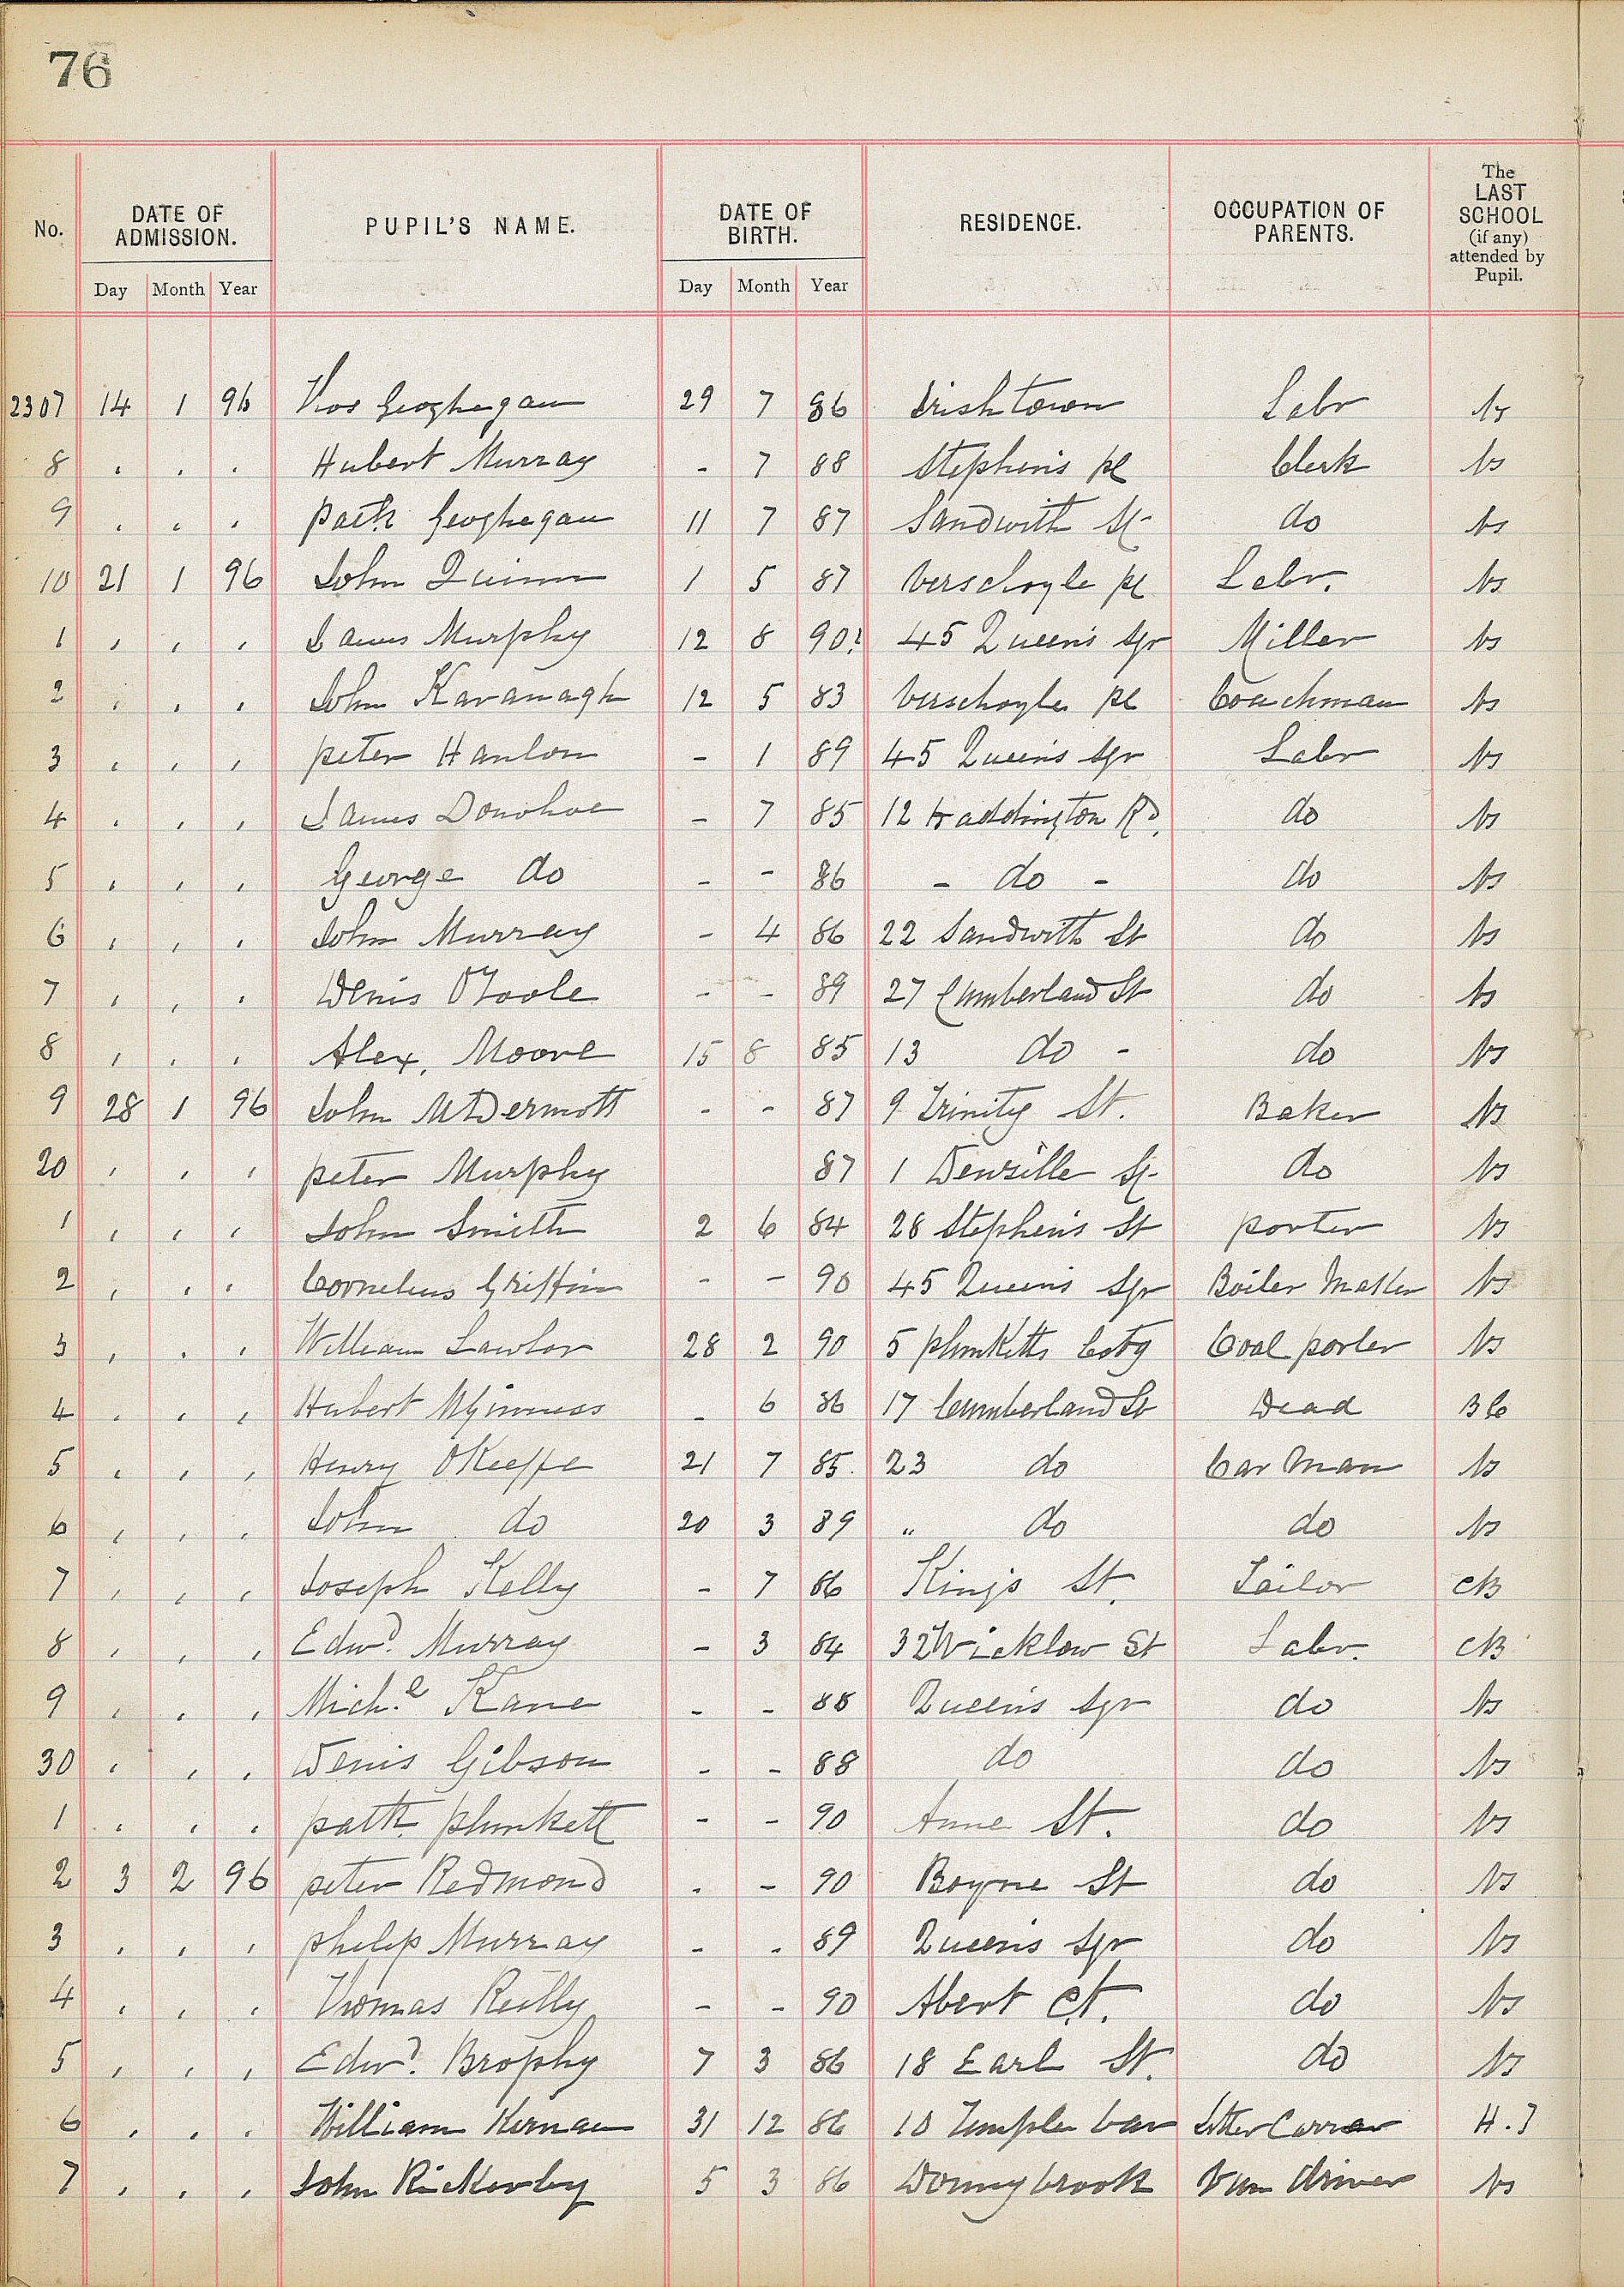 76
No. DATE OF ADMISSION. PUPIL'S NAME. DATE OF BIRTH. RESIDENCE. OCCUPATION OF PARENTS. The LAST SCHOOL (if any) attended by Pupil.
Day Month Year Day Month Year
2307 14 1 96 Thos Geoghegan 29 7 86 Irishtown Labr Ns
8 , , , Hubert Murray - 7 88 Stephen's pl Clerk Ns
9 , , , Patk Geoghegan 11 7 87 Sandwith St do Ns
10 21 1 96 John Quinn 1 5 87 Verschoyle pl Labr. Ns
1 , , , James Murphy 12 8 90? 45 Queen's Sqr Miller Ns
2 , , , John Kavanagh 12 5 83 Verschoyle pl Coachman Ns
3 , , , peter Hanlon - 1 89 45 Queen's Sqr Labr Ns
4 , , , James Donohoe - 7 85 12 Haddington Rd. do Ns
5 , , , George do - - 86 - do - do Ns
6 , , , John Murray - 4 86 22 Sandwith St do Ns
7 , , , Denis O'Toole - - 89 27 Cumberland St do Ns
8 , , , Alex. Moore 15 8 85 13 do - do Ns
9 28 1 96 John McDermott - - 87 9 Trinity St. Baker Ns
20 , , , peter Murphy 87 1 Denzille St do Ns
1 , , , John Smith 2 6 84 28 Stephen's St porter Ns
2 , , , Cornelius Griffin - - 90 45 Queen's Sqr Boiler Maker Ns
3 , , , William Lawlor 28 2 90 5 plunketts Cotg Coal porter Ns
4 , , , Hubert McGinness - 6 86 17 Cumberland St Dead BC
5 , , , Henry O'Keeffe 21 7 85. 23 do Car Man Ns
6 , , , John do 20 3 89 " do do Ns
7 , , , Joseph Kelly - 7 86 King's St. Tailor CB
8 , , , Edwd Murray - 3 84 32 Wicklow St Labr. CB
9 , , , Michl Kane - - 88 Queen's Sqr do Ns
30 , , , Denis Gibson - - 88 do do Ns
1 , , , patk. plunkett - - 90 Anne St. do Ns
2 3 2 96 peter Redmond - - 90 Boyne St do Ns
3 , , , philip Murray - - 89 Queen's Sqr do Ns
4 , , , Thomas Reilly - - 90 Abert Ct. do Ns
5 , , , Edwd. Brophy 7 3 86 18 Earl St. do Ns
6 , , , William Kernan 31 12 86 10 Temple bar Letter Carrier
7 , , , John Rickerby 5 3 86 Donnybrook Van driver Ns